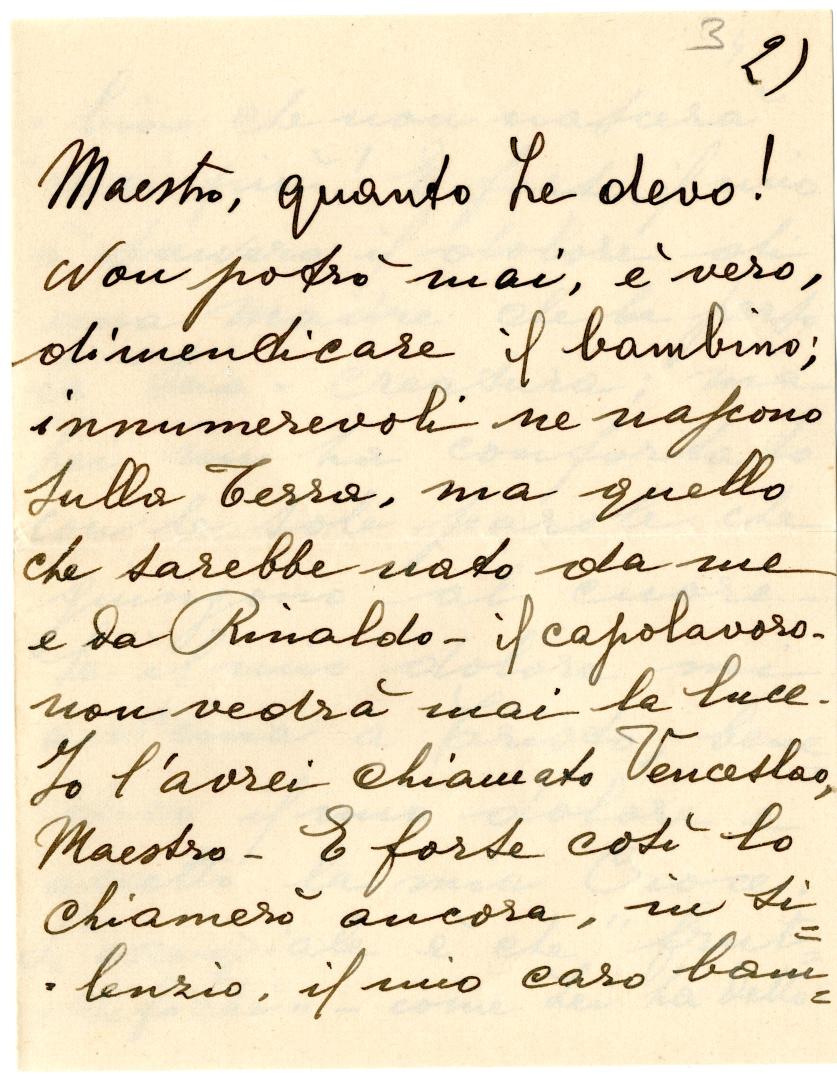 3
2)
Maestro, quanto Le devo!
Non potrò mai, è vero,
dimenticare il bambino;
innumerevoli ne nascono
sulla Terra, ma quello
che sarebbe nato da me
e da Rinaldo - il capolavoro -
non vedrà mai la luce.
Io l'avrei chiamato Venceslao,
Maestro - E forse così lo
chiamerò ancora, in si=
lenzio, il mio caro bam=